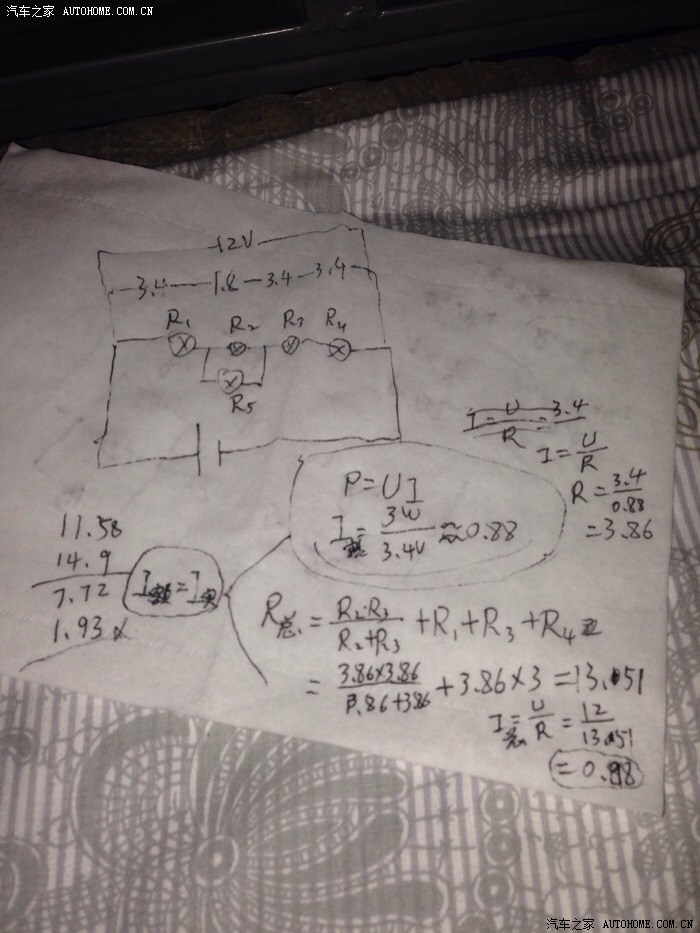 汽车之家 AUTOHOME.COM.CN
12V
3.4 1.8 3.4 3.4
R1 R2 R3 R4
R5
I = U/R = 3.4
I = U/R
R = 3.4/0.88
= 3.86
P = UI
I额 = 3W/3.4V ≈ 0.88
11.58
14.9
7.72
1.93
I额 = I实
R总 = R2·R3/R2+R3 + R1 + R3 + R4
= 3.86×3.86/3.86+3.86 + 3.86×3 = 13.051
I总 = U/R = 12/13.051
= 0.98
汽车之家 AUTOHOME.COM.CN